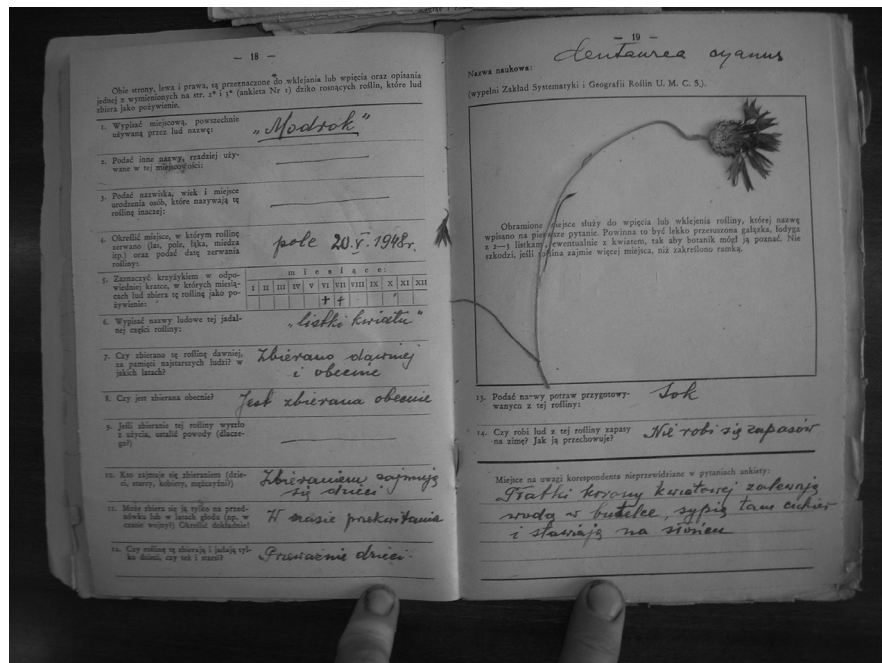 — 18 —
Obie strony, lewa i prawa, są przeznaczone do wklejania lub wpięcia oraz opisania
jednej z wymienionych na str. 2* i 3* (ankieta Nr 1) dziko rosnących roślin, które lud
zbiera jako pożywienie.
1. Wypisać miejscową, powszechnie
używaną przez lud nazwę:
„Modrok"
2. Podać inne nazwy, rzadziej uży-
wane w tej miejscowości:
3. Podać nazwiska, wiek i miejsce
urodzenia osób, które nazywają tę
roślinę inaczej:
4. Określić miejsce, w którym roślinę
zerwano (las, pole, łąka, miedza
itp.) oraz podać datę zerwania
rośliny:
pole 20.V.1948r.
5. Zaznaczyć krzyżykiem w odpo-
wiedniej kratce, w których miesią-
cach lud zbiera tę roślinę jako po-
żywienie:
miesiące:
I II III IV V VI VII VIII IX X XI XII
+ +
6. Wypisać nazwy ludowe tej jadal-
nej części rośliny:
„listki kwiatu"
7. Czy zbierano tę roślinę dawniej,
za pamięci najstarszych ludzi? w
jakich latach?
Zbierano dawniej
i obecnie
8. Czy jest zbierana obecnie?
Jest zbierana obecnie
9. Jeśli zbieranie tej rośliny wyszło
z użycia, ustalić powody (dlacze-
go?)
10. Kto zajmuje się zbieraniem (dzie-
ci, starcy, kobiety, mężczyźni?)
Zbieraniem zajmują
się dzieci
11. Może zbiera się ją tylko na przed-
nówku lub w latach głodu (np. w
czasie wojny)? Określić dokładnie!
W czasie przekwitania
12. Czy roślinę tę zbierają i jadają tyl-
ko dzieci, czy też i starsi?
Przeważnie dzieci
— 19 —
Nazwa naukowa: Centaurea cyanus
(wypełni Zakład Systematyki i Geografii Roślin U. M. C. S.).
Obramione miejsce służy do wpięcia lub wklejenia rośliny, której nazwę
wpisano na pierwsze pytanie. Powinna to być lekko przeruszona gałązka, łodyga
z 2—3 listkami, ewentualnie z kwiatem, tak aby botanik mógł ją poznać. Nie
szkodzi, jeśli roślina zajmie więcej miejsca, niż zakreślono ramką.
13. Podać nazwy potraw przygotowy-
wanych z tej rośliny:
Sok
14. Czy robi lud z tej rośliny zapasy
na zimę? Jak ją przechowuje?
Nie robi się zapasów
Miejsce na uwagi korespondenta nieprzewidziane w pytaniach ankiety:
Płatki korony kwiatowej zalewają
wodą w butelce, sypią tam cukier
i stawiają na słońcu